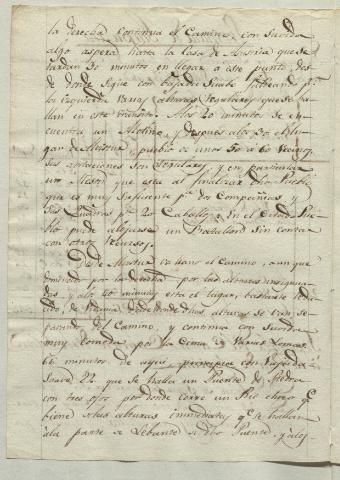 la derecha continua el Camino, con suvida
algo aspera hasta la Casa de que se
tardan 30 minutos en llegar a este punto, des-
de donde sigue con bajada suabe faldeando pr.
la izquierda varias alturas regulares que se ha-
llan en este transito. A los 20 minutos se en-
cuentra un Molino y despues a los 30 el Lu-
gar de pueblo de unos 50 a 60 Vecinos,
sus abitaciones son regulares, y en particular
un Meson que esta al finalizar dho. Pueblo
que es muy suficiente pa. dos Compañias y
sus Quadras pa. 20 Caballos: en el citado Pue-
blo puede alojarse un Batallon sin contar
con otros recursos.
Desde va llano el Camino, aunque
dominado por la derecha por las alturas
y a los 40 minutos esta el lugar, bastante
de desde donde las alturas se van se-
parando del Camino, y continua con suvida
muy comoda por la Cima de varias Lomas
66 minutos de aqui principia con vajada
suave 22 que se halla un Puente de Piedra
con tres ojos por donde corre un Rio chico qe.
biene de las alturas immediatas qe. se hallan
a la parte de Lebante de dho Puente, y a los